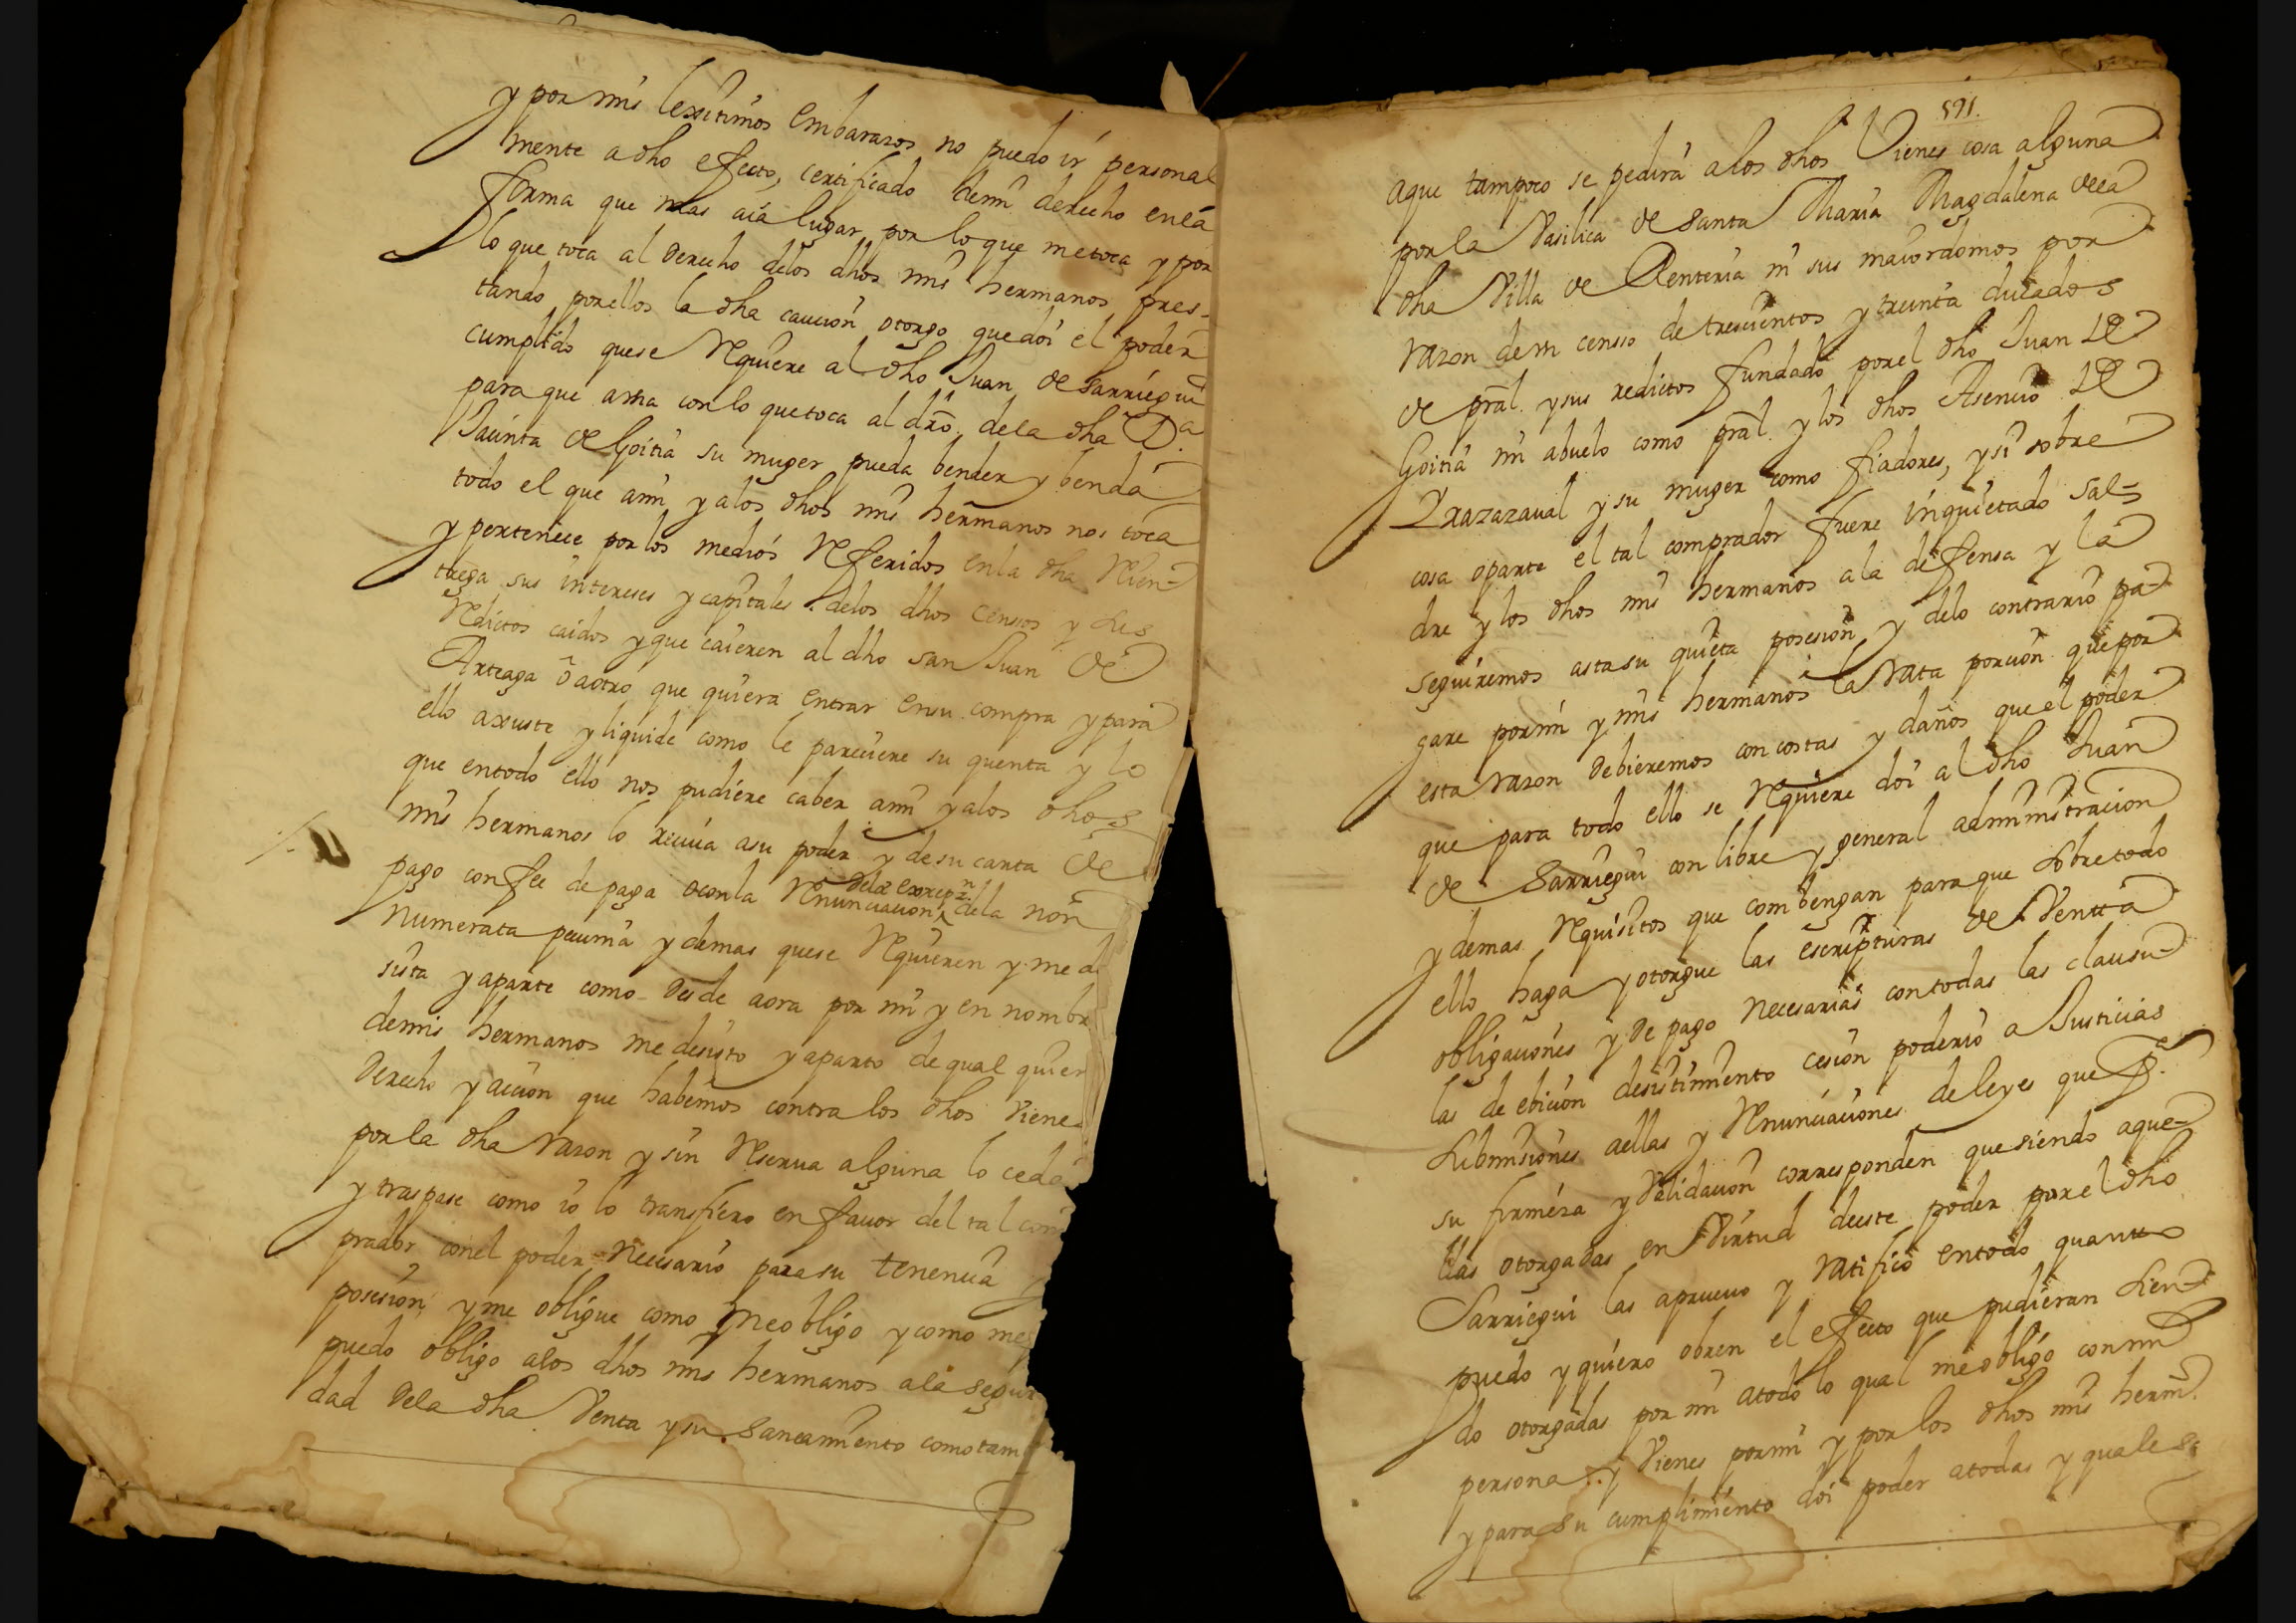 y por mis lexitimos embarazos no puedo ir personal
mente a dho efecto, certificado de mi derecho en la
forma que mas aia lugar por lo que me toca y por
lo que toca al derecho delos dhos mis hermanos pres-
tando por ellos la dha caucion otorgo que doi el poder
cumplido que se Requiere al dho Juan de Sarriegui
para que assi con lo que toca al dro. dela dha Da.
Jacinta de Goitia su muger pueda bender y benda
todo el que ami y alos dhos mis hermanos nos toca
y pertenece por los medios Referidos en la dha
sus intereses y capitales delos dhos censos y
Reditos caidos y que caieren al dho San Juan de
Arteaga ô a otro que quiera entrar en su compra y para
ello axuste y liquide como le pareciere su quenta y lo
que en todo ello nos pudiere caber ami y alos dhos
mis hermanos lo reciua a su poder y de su carta de
pago con fee de paga o con la Renunciacion dela excepn. dela non
numerata pecunia y demas que se Requieren y me de
sista y aparte como desde aora por mi y en nombr
de mis hermanos me desisto y aparto de qual quier
derecho y accion que habemos contra los dhos Viene
por la dha razon y sin Reserua alguna lo ceda
y traspase como io lo transfiero en fauor del tal com
prador con el poder necesario para su tenencia
posesion, y me obligue como me obligo y como me
puedo obligo a los dhos mis hermanos ala segur
dad dela dha Venta y su saneamiento como tam
591.
a que tampoco se pedirá a los dhos Vienes cosa alguna
por la Vasilica de Santa Maria Magdalena dela
dha Villa de Renteria ni sus maiordomos por
razon de un censo de trescientos y treinta ducados
de pral. y sus redictos fundado por el dho Juan de
Goitia mi abuelo como pral. y los dhos Asencio de
Yrazazaual y su muger como fiadores, y si sobre
cosa o parte el tal comprador fuere inquietado sal-
dre y los dhos mis hermanos ala defensa y la
seguiremos asta su quieta posesion y delo contrario pa-
gare por mi y mis hermanos la rata porcion que por
esta razon debieremos con costas y daños que el poder
que para todo ello se Requiere doi al dho Juan
de Sarriegui con libre y general administracion
y demas Requisitos que combengan para que sobre todo
ello haga y otorgue las escripturas de Ventta
obligaciones y de pago necesarias con todas las clausu-
las de ebicion desistimiento cesion poderio a Justicias
submisiones a ellas y Renunciaciones de leyes que pa.
su firmeza y Validacion corresponden que siendo aque-
llas otorgadas en Virtud de este poder por el dho
Sarriegui las aprueuo y ratifico en todo quantto
puedo y quiero obren el efecto que pudieran sien-
do otorgadas por mi a todo lo qual me obligo con mi
persona y Vienes por mi y por los dhos mis herm.
y para su cumplimiento doi poder a todas y quales